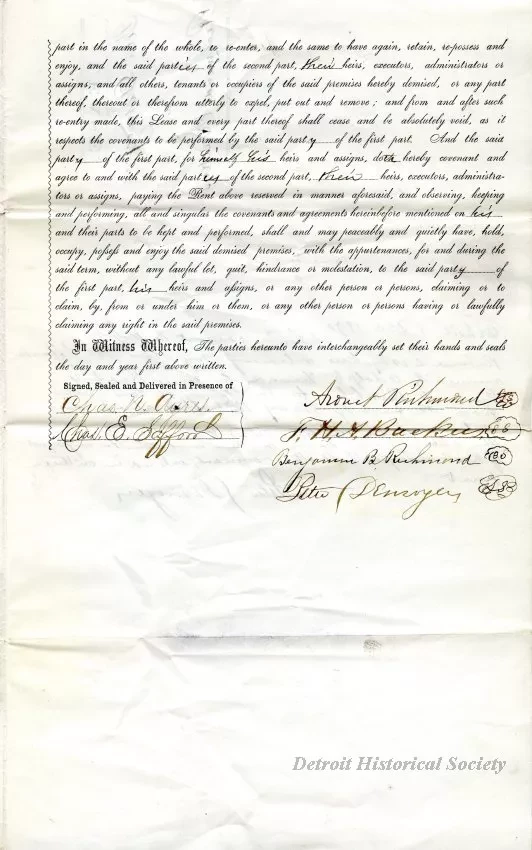 part in the name of the whole, to re-enter, and the same to have again, retain, re-possess and
enjoy, and the said parties of the second part, their heirs, executors, administrators or
assigns, and all others, tenants or occupiers of the said premises hereby demised, or any part
thereof, thereout or therefrom utterly to expel, put out and remove; and from and after such
re-entry made, this Lease and every part thereof shall cease and be absolutely void, as it
respects the covenants to be performed by the said party of the first part. And the said
party of the first part, for himself his heirs and assigns, doth hereby covenant and
agree to and with the said parties of the second part, their heirs, executors, administra-
tors or assigns, paying the Rent above reserved in manner aforesaid, and observing, keeping
and performing, all and singular the covenants and agreements hereinbefore mentioned on his
and their parts to be kept and performed, shall and may peaceably and quietly have, hold,
occupy, possess and enjoy the said demised premises, with the appurtenances, for and during the
said term, without any lawful let, quit, hindrance or molestation, to the said party of
the first part, his heirs and assigns, or any other person or persons, claiming or to
claim, by, from or under him or them, or any other person or persons having or lawfully
claiming any right in the said premises.
In Witness Whereof, The parties hereunto have interchangeably set their hands and seals
the day and year first above written.
Signed, Sealed and Delivered in Presence of
Chas. N.
Chas. E. Safford
Richmond
F. H. A. Backus
Benjamin B. Richmond
Peter Desnoyers
Detroit Historical Society